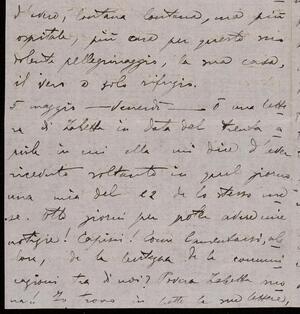 d'vero, lontana lontana, ma più
ospitale, più cara per questo mio
dolente pellegrinaggio, la sua casa,
il vero e solo rifugio.
5 maggio — Venerdì — È una lette-
ra di Zabetta in data del trenta a-
prile in cui ella mi dice d'aver
ricevuto soltanto in quel giorno
una mia del 22 de lo stesso me-
se. Otto giorni per poter averne
notizie! Capisci! Come lamentarsi, al-
lora, de la lentezza de le comuni-
cazioni tra di noi? Povera Zabetta mi-
a!! Io trovo in tutte le sue lettere,